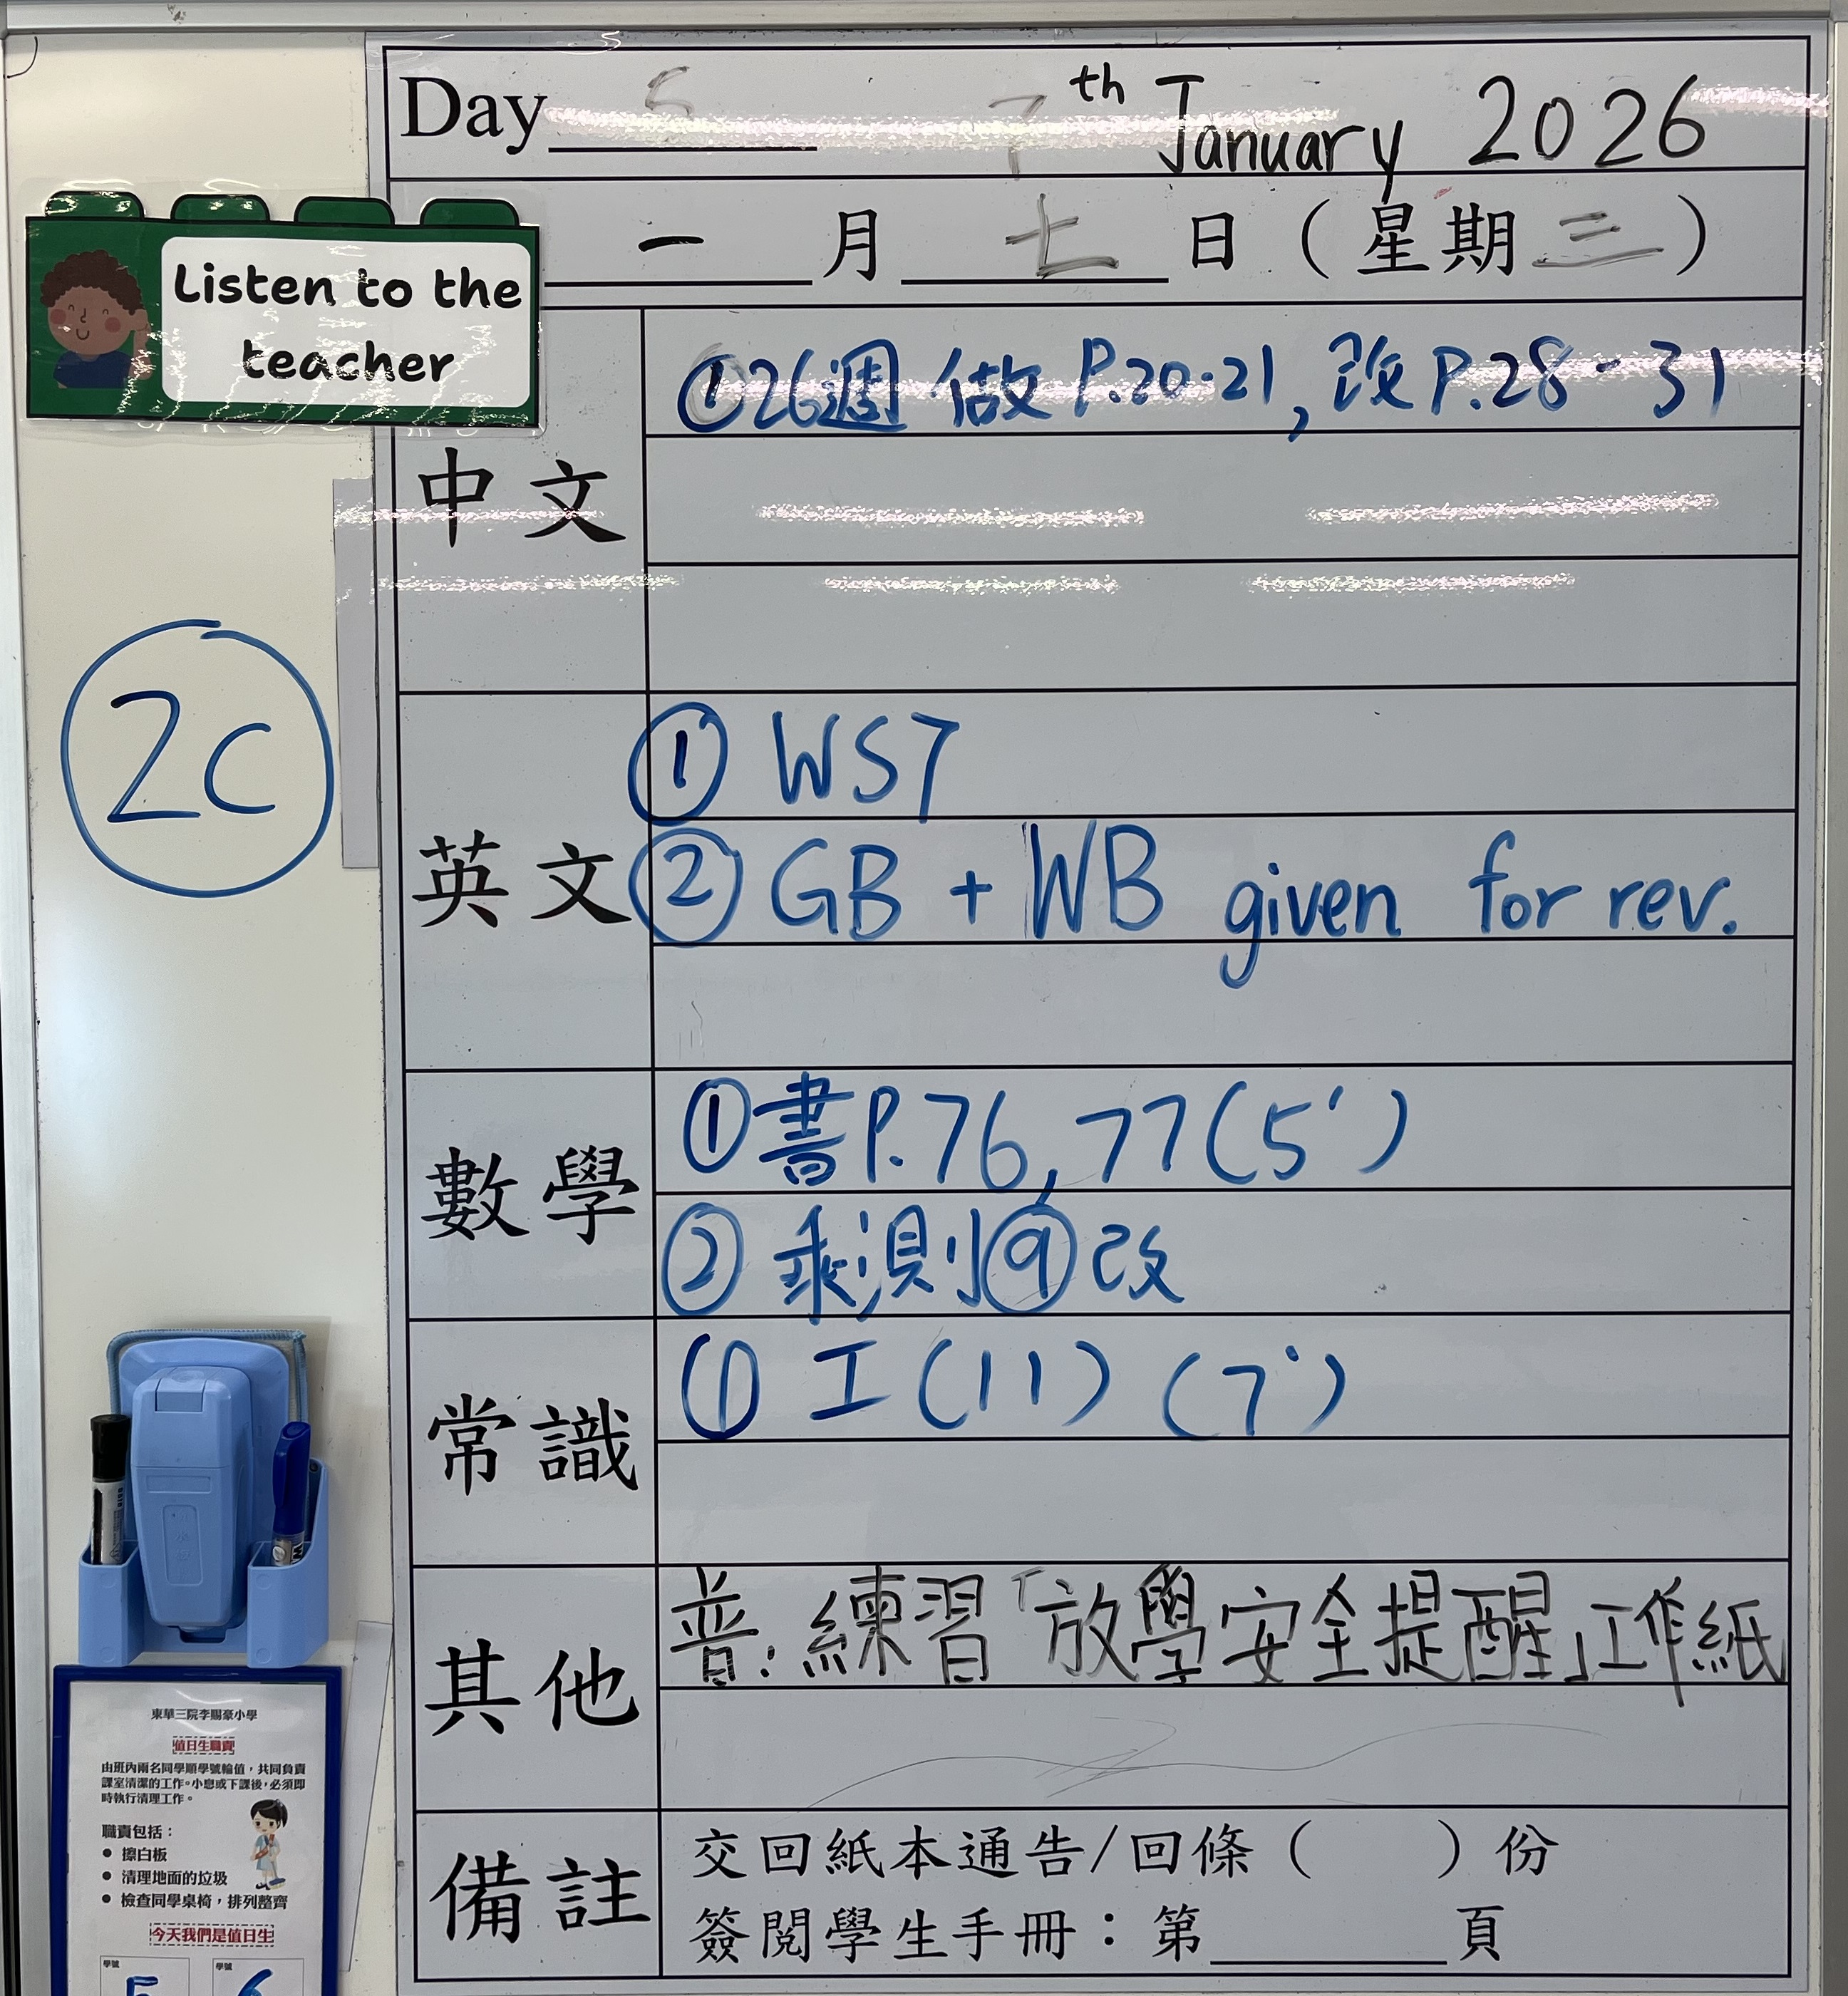 Day 5 7th January 2026
一月七日（星期三）
Listen to the
teacher
中文
①26週 做P.20-21, 改P.28-31
2C
英文
① WS7
② GB + WB given for rev.
數學
①書P.76, 77(5')
②乘測⑨改
常識
① 工(11) (7')
其他
普:練習「放學安全提醒」工作紙
備註
交回紙本通告/回條（ ）份
簽閱學生手冊：第______頁
東華三院李賜豪小學
值日生職責
由班內兩名同學順學號輪值，共同負責
課室清潔的工作。小息或下課後，必須即
時執行清理工作。
職責包括：
● 擦白板
● 清理地面的垃圾
● 檢查同學桌椅，排列整齊
今天我們是值日生
學號 學號
5 6